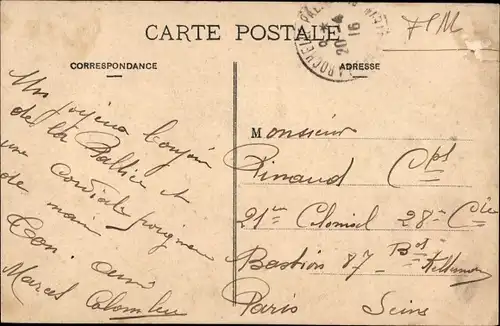 CARTE POSTALE
F M
LA ROCHELLE PAL
20 - 4
16
CORRESPONDANCE
ADRESSE
Un joyeux bonjour
de la Pallice et
une cordiale poignée
de main
Ton ami
Marcel Colombier
Monsieur
Pinaud Cpl
21em Colonial 28e Cie
Bastion 87 Bd
Paris Seine